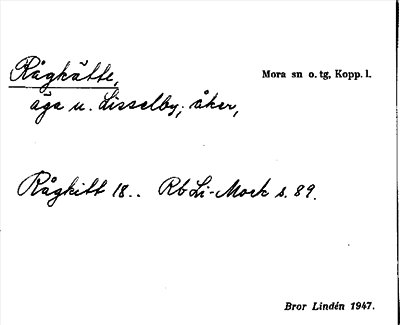 Råghätte,
Mora sn o. tg, Kopp. l.
äga u. Lisselby, åker,
Rågkitt 18.. Rb Li-Mork s. 89.
Bror Lindén 1947.